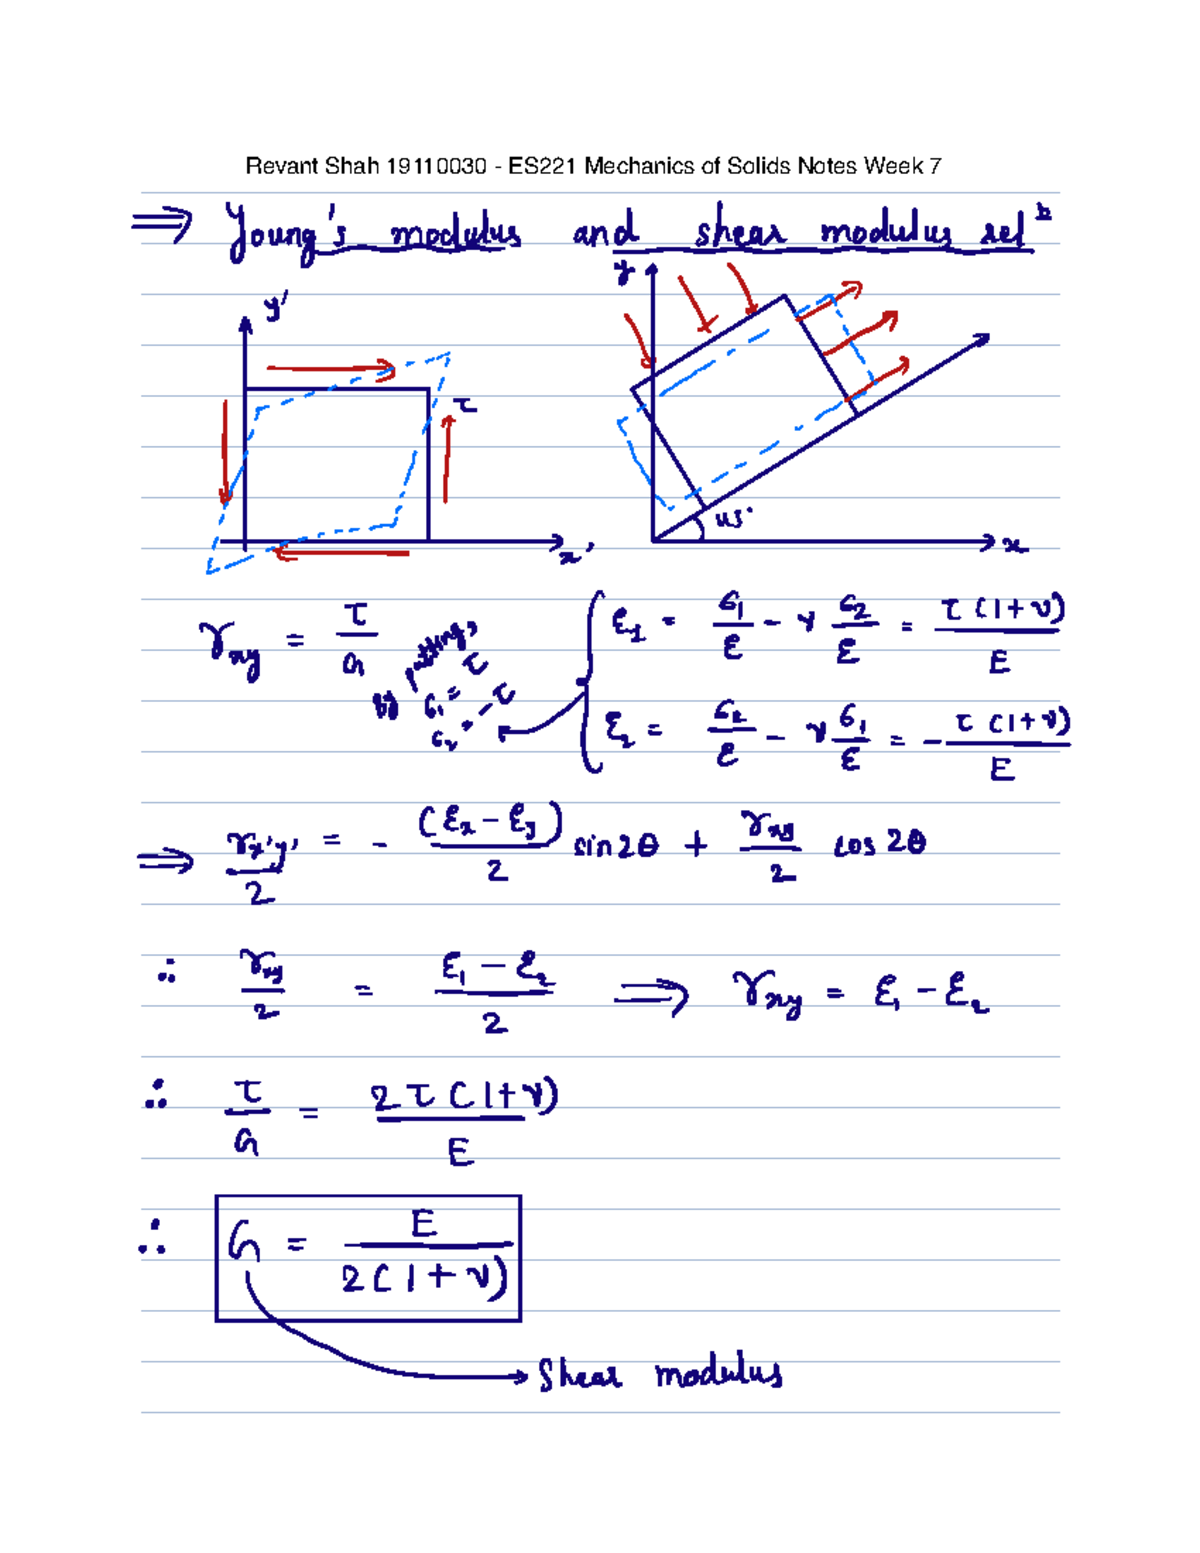 Revant Shah 19110030 - ES221 Mechanics of Solids Notes Week 7
⇒ Young's modulus and shear modulus relⁿ
y' y
τ
45°
x' x
γxy = τ/G by putting, σ1 = τ σ2 = -τ
ε1 = σ1/E - ν σ2/E = τ(1+ν)/E
ε2 = σ2/E - ν σ1/E = - τ(1+ν)/E
⇒ γx'y'/2 = - (εx - εy)/2 sin2θ + γxy/2 cos 2θ
∴ γxy/2 = ε1 - ε2/2 ⇒ γxy = ε1 - ε2
∴ τ/G = 2τ(1+ν)/E
∴ G = E/2(1+ν)
Shear modulus